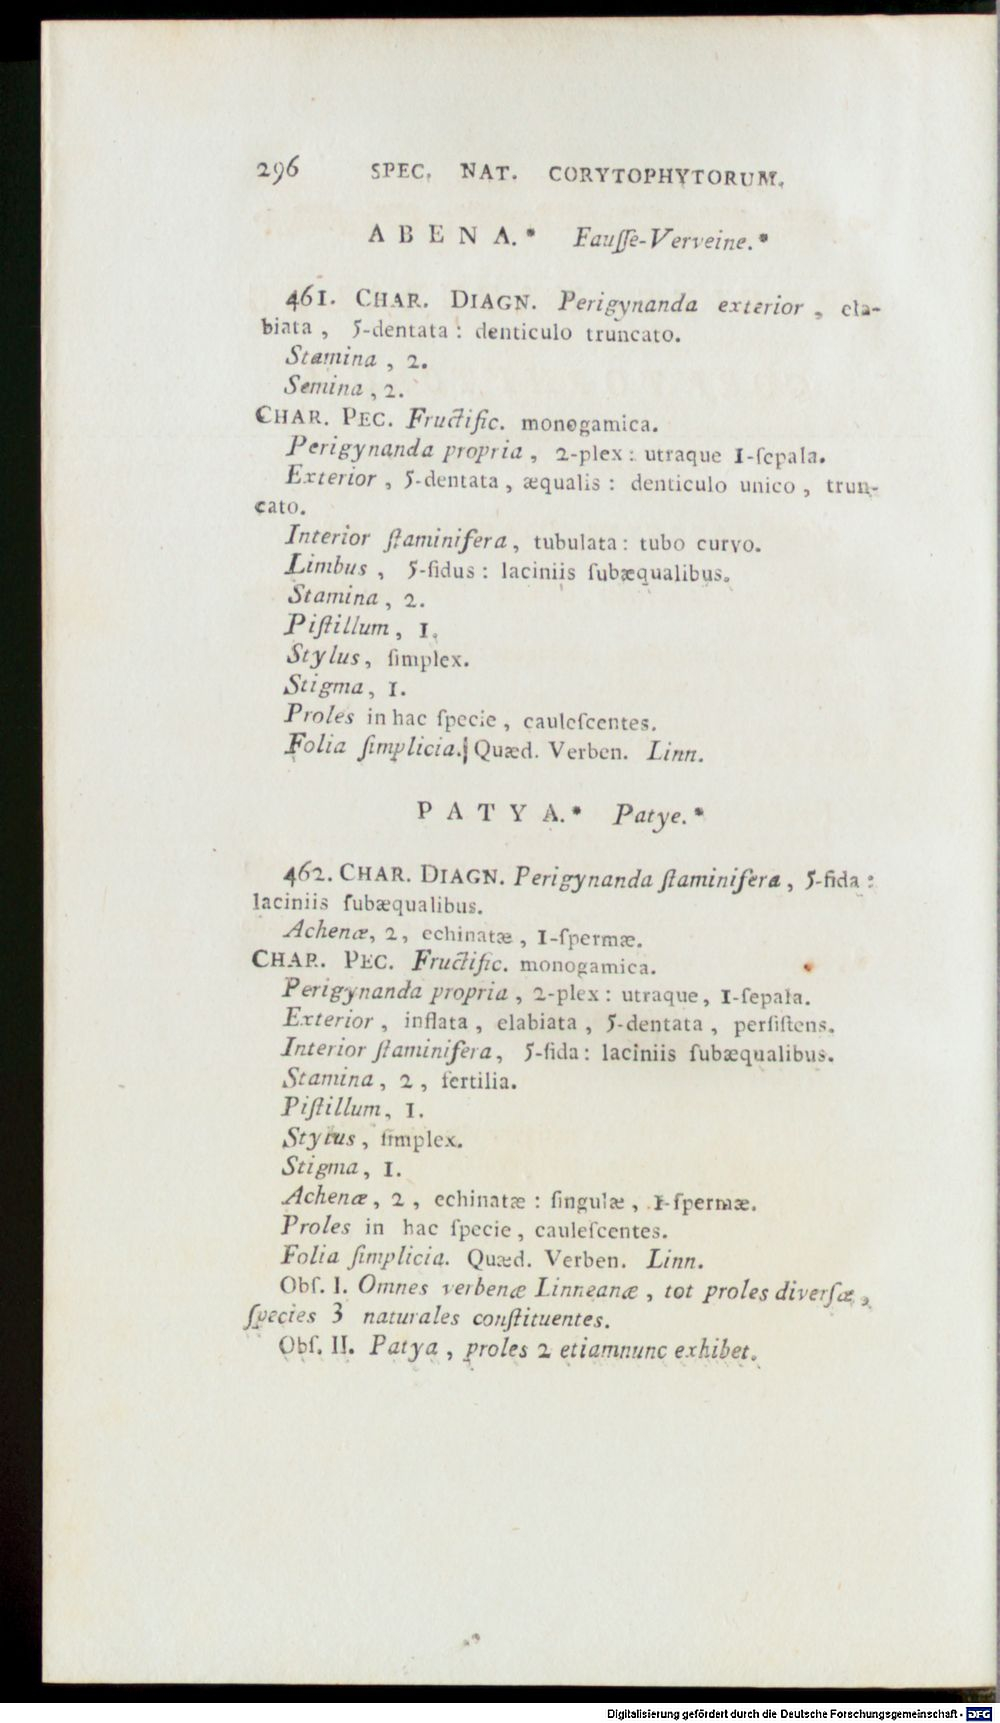 296 SPEC. NAT. CORYTOPHYTORUM.
ABENA.* Fauſſe-Verveine.*
461. CHAR. DIAGN. Perigynanda exterior, ela-
biata, 5-dentata : denticulo truncato.
Stamina, 2.
Semina, 2.
CHAR. PEC. Fructific. monogamica.
Perigynanda propria, 2-plex : utraque 1-ſepala.
Exterior, 5-dentata, æqualis : denticulo unico, trun-
cato.
Interior ſtaminifera, tubulata : tubo curvo.
Limbus, 5-fidus : laciniis ſubæqualibus.
Stamina, 2.
Piſtillum, 1.
Stylus, ſimplex.
Stigma, 1.
Proles in hac ſpecie, cauleſcentes.
Folia ſimplicia. Quæd. Verben. Linn.
PATYA.* Patye.*
462. CHAR. DIAGN. Perigynanda ſtaminifera, 5-fida :
laciniis ſubæqualibus.
Achenæ, 2, echinatæ, 1-ſpermæ.
CHAR. PEC. Fructific. monogamica.
Perigynanda propria, 2-plex : utraque, 1-ſepala.
Exterior, inflata, elabiata, 5-dentata, perſiſtens.
Interior ſtaminifera, 5-fida : laciniis ſubæqualibus.
Stamina, 2, fertilia.
Piſtillum, 1.
Stylus, ſimplex.
Stigma, 1.
Achenæ, 2, echinatæ : ſingulæ, 1-ſpermæ.
Proles in hac ſpecie, cauleſcentes.
Folia ſimplicia. Quæd. Verben. Linn.
Obſ. I. Omnes verbenæ Linneanæ, tot proles diverſæ,
ſpecies 3 naturales conſtituentes.
Obſ. II. Patya, proles 2 etiamnunc exhibet.
Digitalisierung gefördert durch die Deutsche Forschungsgemeinschaft - DFG